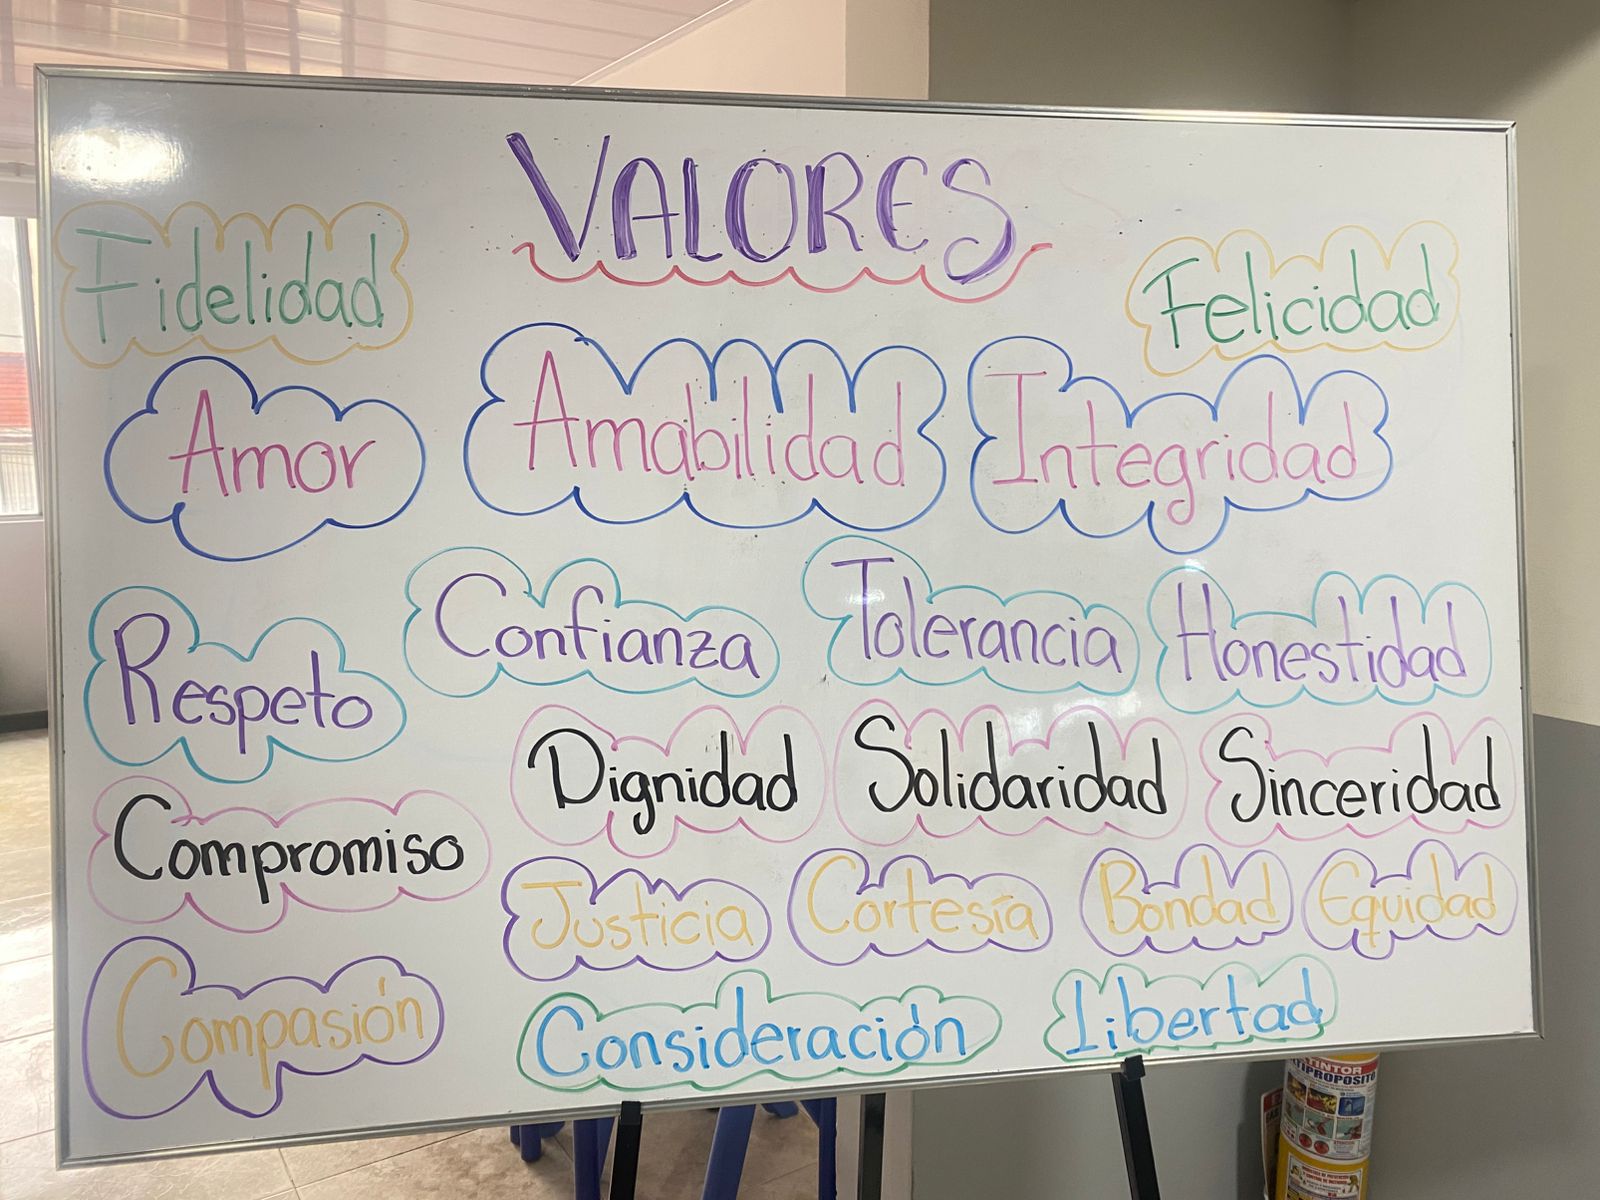 VALORES
Fidelidad
Felicidad
Amor
Amabilidad
Integridad
Respeto
Confianza
Tolerancia
Honestidad
Compromiso
Dignidad
Solidaridad
Sinceridad
Justicia
Cortesía
Bondad
Equidad
Compasión
Consideración
Libertad